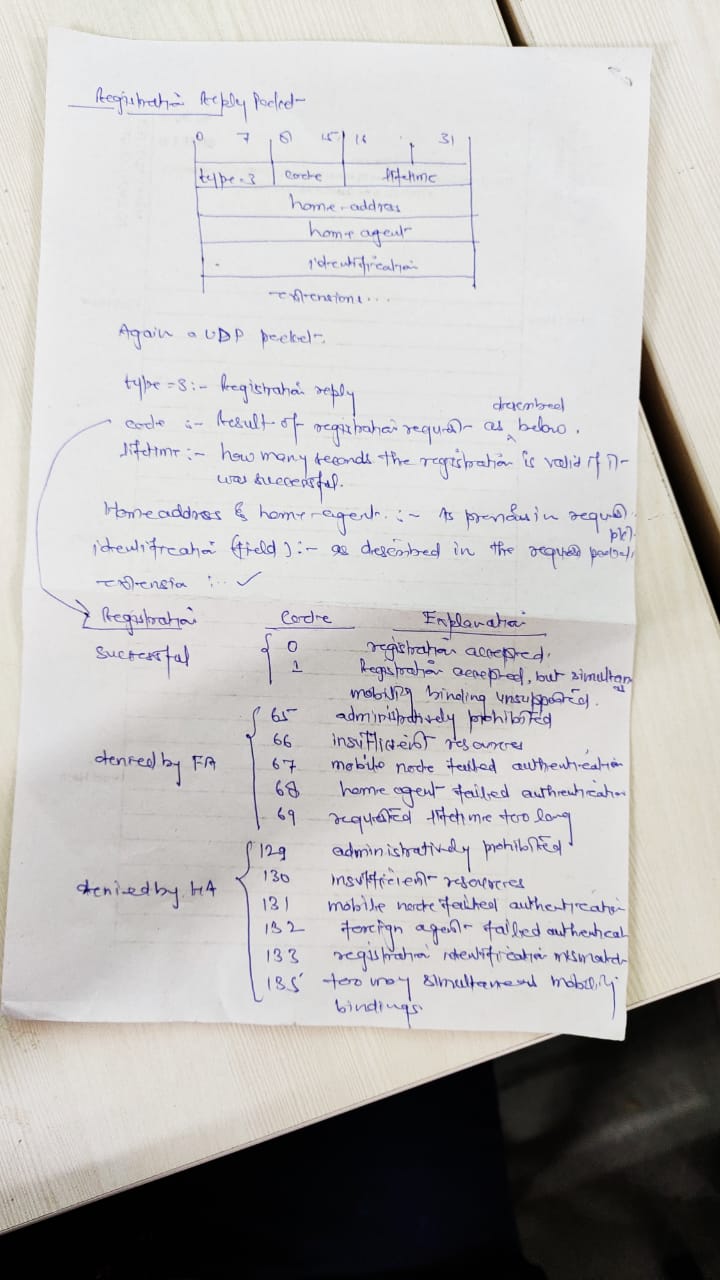 Registration Reply Packet
0 7 8 15 16 31
type=3 code lifetime
home address
home agent
identification
extensions...
Again a UDP packet.
type=3:- Registration reply
code :- Result of registration request as described below.
lifetime :- how many seconds the registration is valid if it
was successful.
Home address & home-agent. :- As previous in request
pkt.
identification (field):- as described in the request packet
extension :- ✓
Registration Code Explanation
successful 0 registration accepted.
1 Registration accepted, but simultan
mobility binding unsupported.
65 administratively prohibited
66 insufficient resources
denied by FA 67 mobile node failed authentication
68 home agent failed authentication
69 requested lifetime too long
129 administratively prohibited
denied by HA 130 insufficient resources
131 mobile node failed authentication
132 foreign agent failed authenticat
133 registration identification mismatch
135 too many simultaneous mobility
bindings.